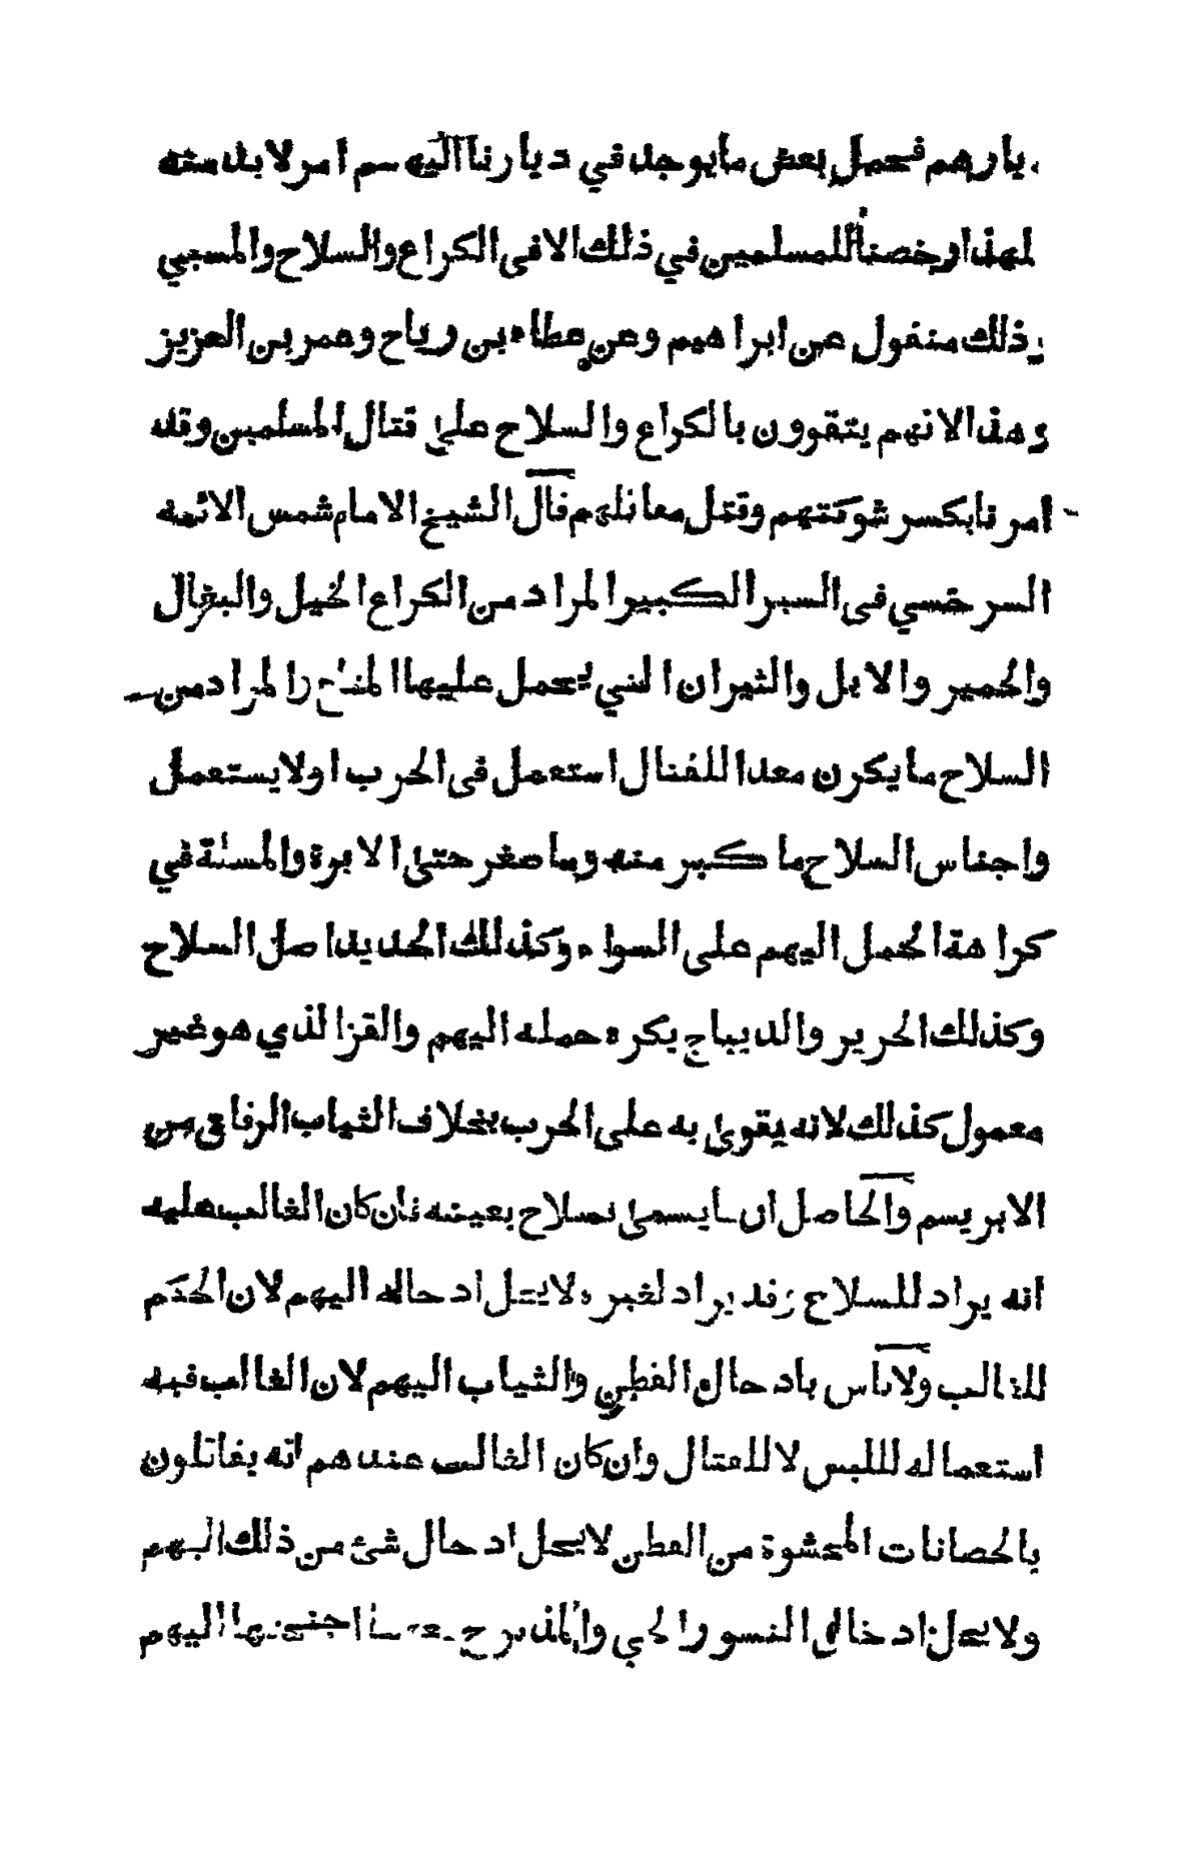 يارهم فحمل بعض مايوجد في ديارنا اليهم امر لا بد منه
لهذا رخصنا للمسلمين في ذلك الا فى الكراع والسلاح والسبي
وذلك منقول عن ابراهيم وعن عطاء بن رباح وعمر بن العزيز
وهذا لانهم يتقوون بالكراع والسلاح على قتال المسلمين وقد
امرنا بكسر شوكتهم وقتل مقاتلهم قال الشيخ الامام شمس الائمه
السرخسي فى السير الكبير المراد من الكراع الخيل والبغال
والحمير والابل والثيران التي يحمل عليها المتاع والمراد من
السلاح ما يكون معدا للقتال استعمل فى الحرب او لا يستعمل
واجناس السلاح ما كبر منه وما صغر حتى الابرة والمسلة في
كراهة الحمل اليهم على السواء وكذلك الحديد اصل السلاح
وكذلك الحرير والديباج يكره حمله اليهم والقز الذي هو غير
معمول كذلك لانه يقوى به على الحرب بخلاف الثياب الرقاق من
الابريسم والحاصل ان ما يسمى بسلاح بعينه فان كان الغالب عليه
انه يراد للسلاح وقد يراد لغيره لا يحل ادخاله اليهم لان الحكم
للغالب ولا باس بادخال القطن والثياب اليهم لان الغالب فيه
استعماله لللبس لا للقتال وان كان الغالب عندهم انه يقاتلون
بالخصانات المحشوة من القطن لا يحل ادخال شئ من ذلك اليهم
ولا يحل ادخال النسور الحي والمذبوح اجنحتها اليهم